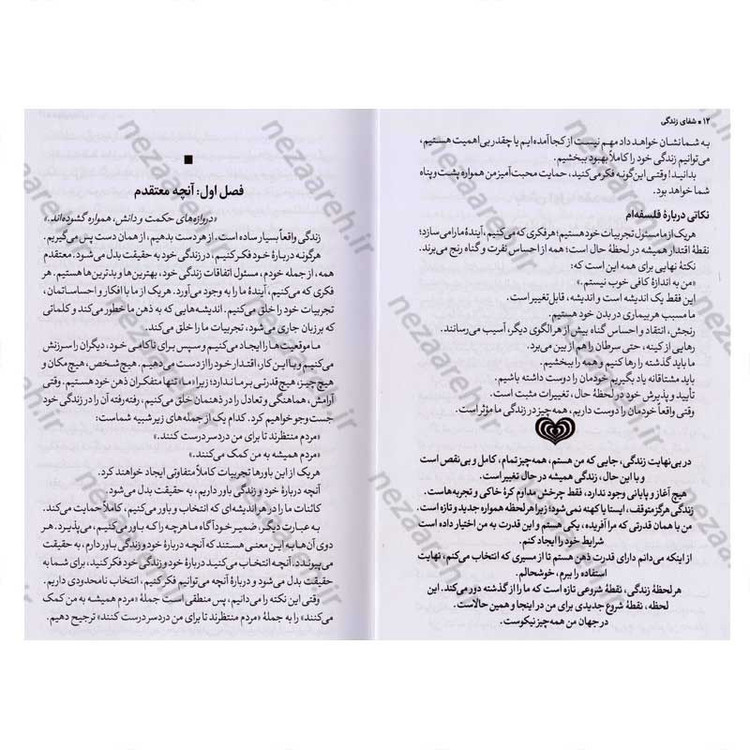 ۱۲ • شفای زندگی
به شما نشان خواهد داد مهم نیست از کجا آمده‌ایم یا چقدر بی‌اهمیت هستیم،
می‌توانیم زندگی خود را کاملاً بهبود ببخشیم.
بدانید! وقتی این‌گونه فکر می‌کنید، حمایت محبت‌آمیز من همواره پشت و پناه
شما خواهد بود.
نکاتی دربارهٔ فلسفه‌ام
هر یک از ما مسئول تجربیات خود هستیم؛ هر فکری که می‌کنیم، آیندهٔ ما را می‌سازد؛
نقطهٔ اقتدار همیشه در لحظهٔ حال است؛ همه از احساس نفرت و گناه رنج می‌برند.
نکتهٔ نهایی برای همه این است که:
«من به اندازهٔ کافی خوب نیستم.»
این فقط یک اندیشه است و اندیشه، قابل‌تغییر است.
ما مسبب هر بیماری در بدن خود هستیم.
رنجش، انتقاد و احساس گناه بیش از هر الگوی دیگر، آسیب می‌رسانند.
رهایی از کینه، حتی سرطان را هم از بین می‌برد.
ما باید گذشته را رها کنیم و همه را ببخشیم.
باید مشتاقانه یاد بگیریم خودمان را دوست داشته باشیم.
تأیید و پذیرش خود در لحظهٔ حال، تغییرات مثبت است.
وقتی واقعاً خودمان را دوست داریم، همه‌چیز در زندگی ما مؤثر است.
در بی‌نهایت زندگی، جایی که من هستم، همه‌چیز تمام، کامل و بی‌نقص است
و با این حال، زندگی همیشه در حال تغییر است.
هیچ آغاز و پایانی وجود ندارد، فقط چرخش مداوم کرهٔ خاکی و تجربه‌هاست.
زندگی هرگز متوقف، ایستا یا کهنه نمی‌شود؛ زیرا هر لحظه همواره جدید و تازه است.
من با همان قدرتی که مرا آفریده، یکی هستم و این قدرت به من اختیار داده است
شرایط خود را ایجاد کنم.
از اینکه می‌دانم دارای قدرت ذهن هستم تا از مسیری که انتخاب می‌کنم، نهایت
استفاده را ببرم، خوشحالم.
هر لحظهٔ زندگی، نقطهٔ شروعی تازه است که ما را از گذشته دور می‌کند. این
لحظه، نقطهٔ شروع جدیدی برای من در اینجا و همین حالاست.
در جهان من همه‌چیز نیکوست.
فصل اول: آنچه معتقدم
«دروازه‌های حکمت و دانش، همواره گشوده‌اند.»
زندگی واقعاً بسیار ساده است، از هر دست بدهیم، از همان دست پس می‌گیریم.
هرگونه دربارهٔ خود فکر کنیم، در زندگی خود به حقیقت بدل می‌شود. معتقدم
همه، از جمله خودم، مسئول اتفاقات زندگی خود، بهترین‌ها و بدترین‌ها هستیم. هر
فکری که می‌کنیم، آیندهٔ ما را به وجود می‌آورد. هر یک از ما با افکار و احساساتمان،
تجربیات خود را خلق می‌کنیم. اندیشه‌هایی که به ذهن ما خطور می‌کند و کلماتی
که بر زبان جاری می‌شود، تجربیات ما را خلق می‌کند.
ما موقعیت‌ها را ایجاد می‌کنیم و سپس برای ناکامی خود، دیگران را سرزنش
می‌کنیم و با این کار، اقتدار خود را از دست می‌دهیم. هیچ شخص، هیچ مکان و
هیچ چیز، هیچ قدرتی بر ما ندارد؛ زیرا ما، تنها متفکران ذهن خود هستیم. وقتی
آرامش، هماهنگی و تعادل را در ذهنمان خلق می‌کنیم، رفته‌رفته آن را در زندگی خود
جست‌وجو خواهیم کرد. کدام یک از جمله‌های زیر شبیه شماست:
«مردم منتظرند تا برای من دردسر درست کنند.»
«مردم همیشه به من کمک می‌کنند.»
هر یک از این باورها تجربیات کاملاً متفاوتی ایجاد خواهند کرد.
آنچه دربارهٔ خود و زندگی باور داریم، به حقیقت بدل می‌شود.
کائنات ما را در هر اندیشه‌ای که انتخاب و باور می‌کنیم، کاملاً حمایت می‌کند.
به عبارت دیگر، ضمیر خودآگاه ما هر چه را که باور می‌کنیم، می‌پذیرد. هر
دوی آن‌ها به این معنی هستند که آنچه دربارهٔ خود و زندگی باور دارم، به حقیقت
می‌پیوندد. آنچه انتخاب می‌کنید دربارهٔ خود و زندگی خود فکر کنید، برای شما به
حقیقت بدل می‌شود و دربارهٔ آنچه می‌توانیم فکر کنیم، انتخاب نامحدودی داریم.
وقتی این نکته را می‌دانیم، پس منطقی است جملهٔ «مردم همیشه به من کمک
می‌کنند» را به جملهٔ «مردم منتظرند تا برای من دردسر درست کنند» ترجیح دهیم.
nezaareh.ir